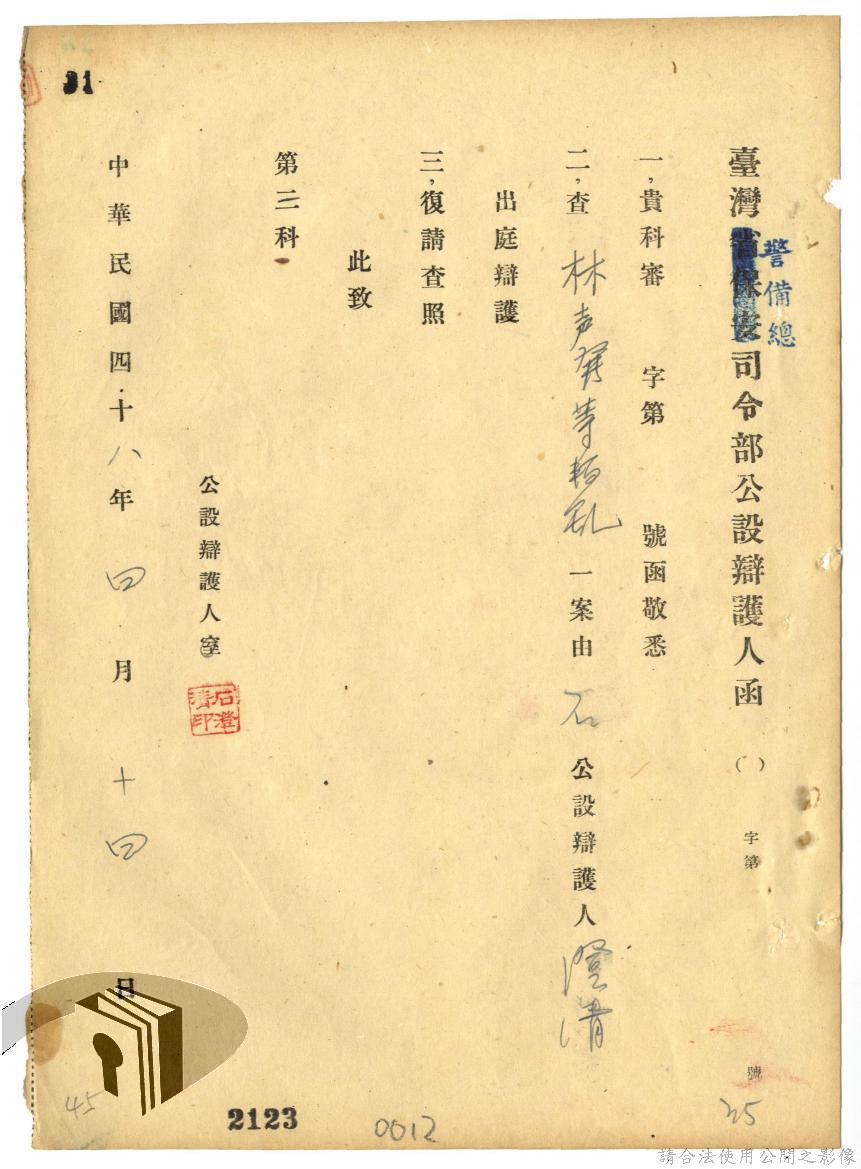 臺灣警備總司令部公設辯護人函 ( ) 字第 號
一,貴科審 字第 號函敬悉
二,查 林声發等叛亂 一案由 石 公設辯護人 澄清
出庭辯護
三,復請查照
此致
第二科
公設辯護人室
石澄清印
中華民國四十八年 四 月 十四 日
31
45
2123
0012
請合法使用公開之影像